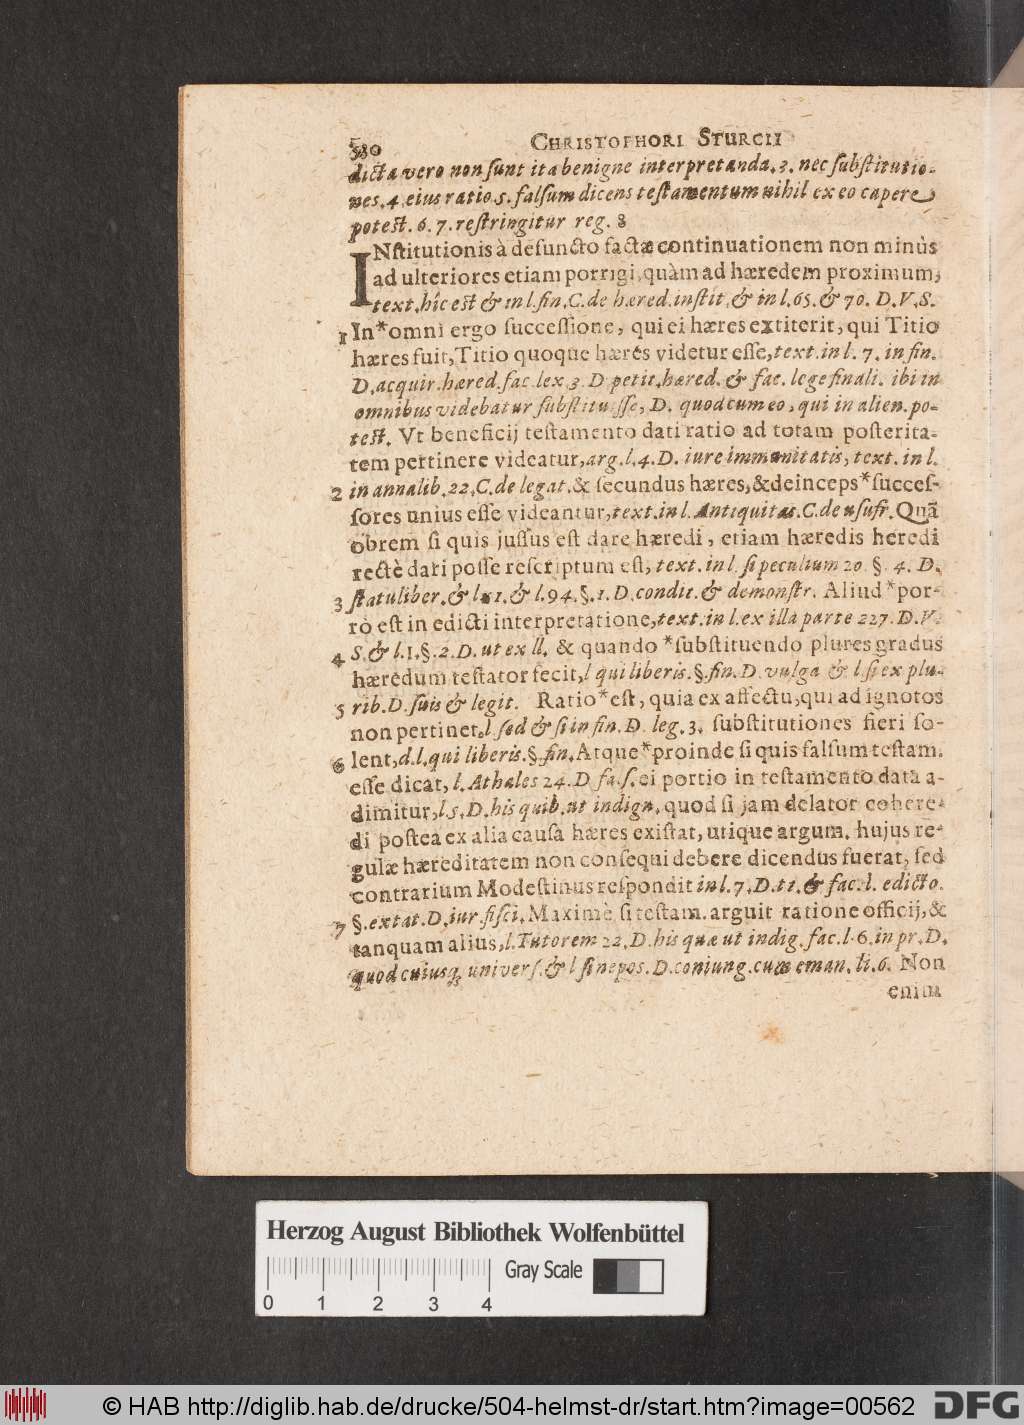 580 CHRISTOPHORI STURCII
dicta vero non sunt ita benigne interpretanda. 3. nec substitutio-
nes. 4. eius ratio. 5. falsum dicens testamentum nihil ex eo capere
potest. 6. 7. restringitur reg. 8
INstitutionis à defuncto factæ continuationem non minùs
ad ulteriores etiam porrigi, quàm ad hæredem proximum,
text. hîc est & in l. fin. C. de hæred. instit. & in l. 65. & 70. D. V. S.
1 In*omni ergo successione, qui ei hæres extiterit, qui Titio
hæres fuit, Titio quoque hæres videtur esse, text. in l. 7. in fin.
D. acquir. hæred. fac. lex 3. D petit. hæred. & fac. lege finali. ibi in
omnibus videbatur substituisse, D. quod cum eo, qui in alien. po-
test. Vt beneficij testamento dati ratio ad totam posterita-
tem pertinere videatur, arg. l. 4. D. iure immunitatis, text. in l.
2 in annalib. 22. C. de legat. & secundus hæres, & deinceps*succes-
sores unius esse videantur, text. in l. Antiquitas. C. de usufr. Quã
obrem si quis jussus est dare hæredi, etiam hæredis heredi
rectè dari posse rescriptum est, text. in l. si peculium 20. §. 4. D.
3 statuliber. & l. 51. & l. 94. §. 1. D. condit. & demonstr. Aliud*por-
rò est in edicti interpretatione, text. in l. ex illa parte 227. D. V.
4 S. & l. 1. §. 2. D. ut ex ll. & quando *substituendo plures gradus
hæredum testator fecit, l qui liberis. §. fin. D. vulga & l si ex plu-
5 rib. D. suis & legit. Ratio*est, quia ex affectu, qui ad ignotos
non pertinet. l. sed & si in fin. D. leg. 3. substitutiones fieri so-
6 lent, d. l. qui liberis. §. fin. Atque*proinde si quis falsum testam.
esse dicat, l. Athales 24. D fals. ei portio in testamento data a-
dimitur, l. 5. D. his quib. ut indign. quod si jam delator cohere-
di postea ex alia causa hæres existat, utique argum. hujus re-
gulæ hæreditatem non consequi debere dicendus fuerat, sed
contrarium Modestinus respondit in l. 7. D. tt. & fac. l. edicto.
7 §. extat. D. iur. fisci. Maximè si testam. arguit ratione officij, &
tanquam alius, l. Tutorem 22. D. his quæ ut indig. fac. l. 6. in pr. D.
quod cuiusq; univers. & l si nepos. D. coniung. cum eman. li. 6. Non
enim
Herzog August Bibliothek Wolfenbüttel
Gray Scale
0 1 2 3 4
© HAB http://diglib.hab.de/drucke/504-helmst-dr/start.htm?image=00562 DFG